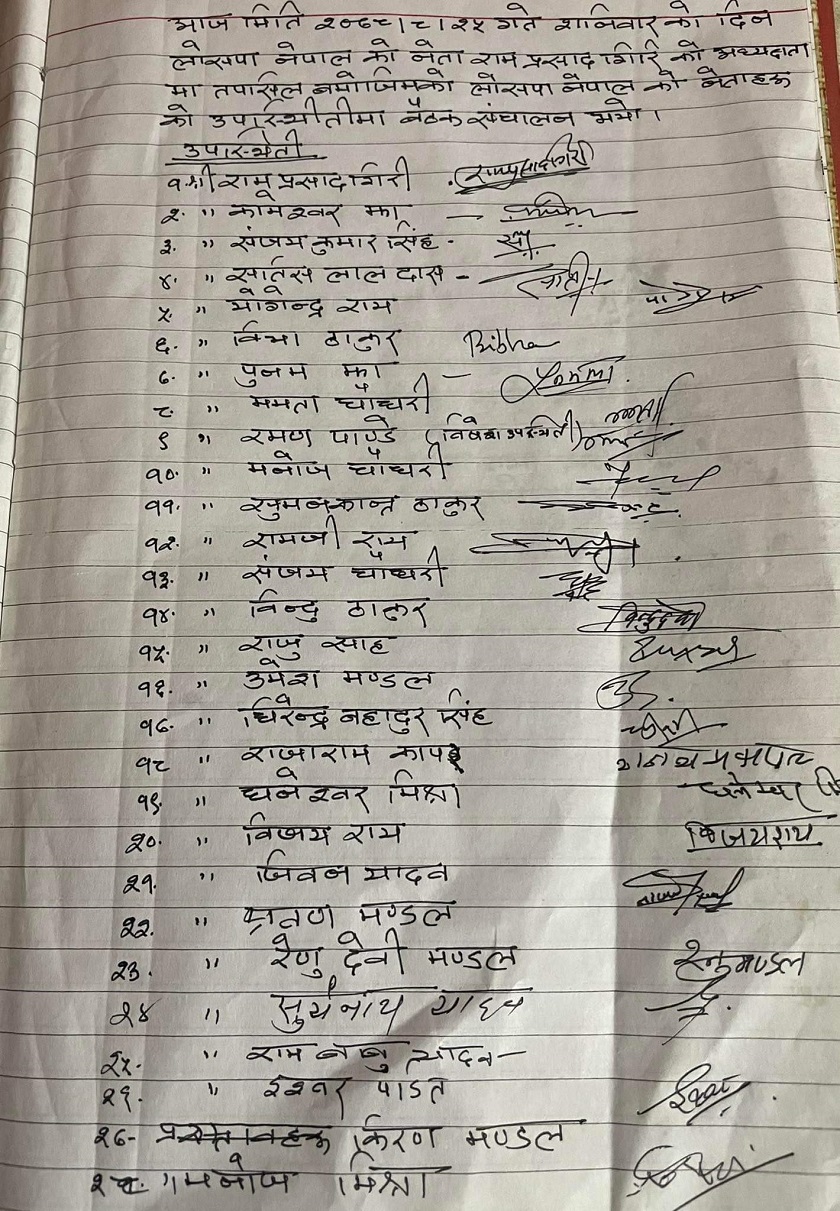 आज मिति २०७८।८।२५ गते शनिवार को दिन
लोसपा नेपाल को नेता राम प्रसाद गिरि को अध्यक्षता
मा तपसिल बमोजिमको लोसपा नेपाल को नेताहरु
को उपस्थितीमा बैठक संचालन भयो।
उपस्थिती
१. श्री रामु प्रसाद गिरी रामप्रसाद गिरी
२. " कामेश्वर झा
३. " संजय कुमार सिंह -
४. " सतिस लाल दास -
५. " योगेन्द्र राम
६. " विभा ठाकुर Bibha
७. " पुनम झा
८. " ममता चौधरी
९ " रमण पाण्डे (विशेष उपस्थिती)
१०. " मनोज चौधरी
११. " सुमनकान्त ठाकुर
१२. " रामजी राम
१३. " संजय चौधरी
१४. " विन्दु ठाकुर विन्दु देवी
१५. " राजु साह
१६. " उमेश मण्डल
१७. " धिरेन्द्र बहादुर सिंह
१८ " राजाराम कापर
१९. " धनेश्वर मिश्रा धनेश्वर
२०. " विजय राम विजय राम
२१. " जिवन यादव
२२. " श्रवण मण्डल
२३. " रेणु देवी मण्डल रेनु मण्डल
२४ " सुर्य नाथ यादव
२५. " राम बाबु यादव -
२६. " ईश्वर पंडित
२७- किरण मण्डल
२८ " मनोज मिश्रा